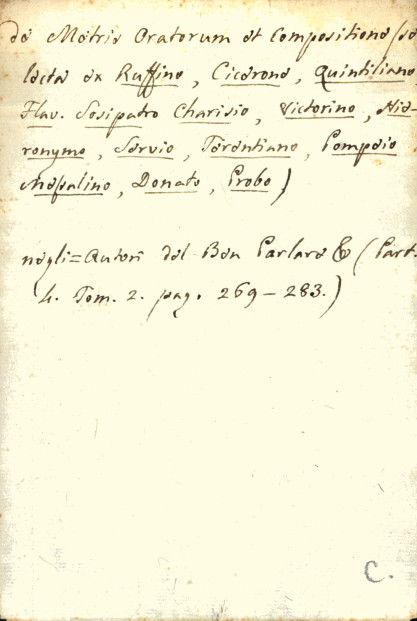 de Metris Oratorum et Compositione (se
lecta ex Ruffino, Cicerone, Quintiliano
Flav. Sosipatro Charisio, Victorino, Hie-
ronymo, Servio, Terentiano, Pompeio
Messalino, Donato, Probo)
negli=Autori del Ben Parlare & (Part.
4. Tom. 2. pag. 269-283.)
C.